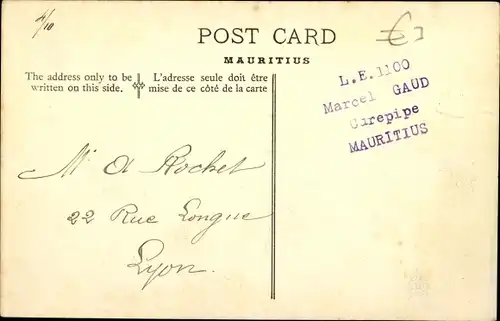 4/10
POST CARD
MAURITIUS
The address only to be
written on this side.
L'adresse seule doit être
mise de ce côté de la carte
L.E.1100
Marcel GAUD
Curepipe
MAURITIUS
Mr A Rochet
22 Rue Longue
Lyon.